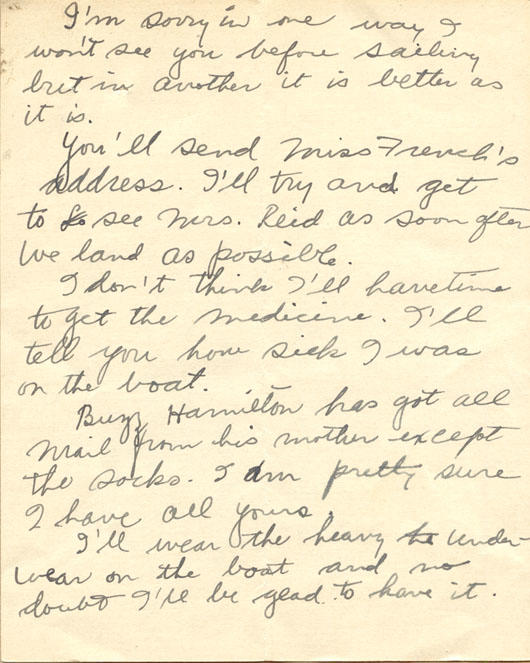 I'm sorry in one way I
won't see you before sailing
but in another it is better as
it is.
You'll send Miss French's
address. I'll try and get
to see Mrs. Reid as soon after
we land as possible.
I don't think I'll have time
to get the medicine. I'll
tell you how sick I was
on the boat.
Buzz Hamilton has got all
mail from his mother except
the socks. I am pretty sure
I have all yours.
I'll wear the heavy under-
wear on the boat and no
doubt I'll be glad to have it.